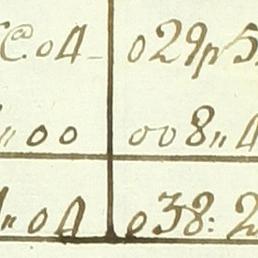 @.04- 029p5
"00 008"4
"04 038:2